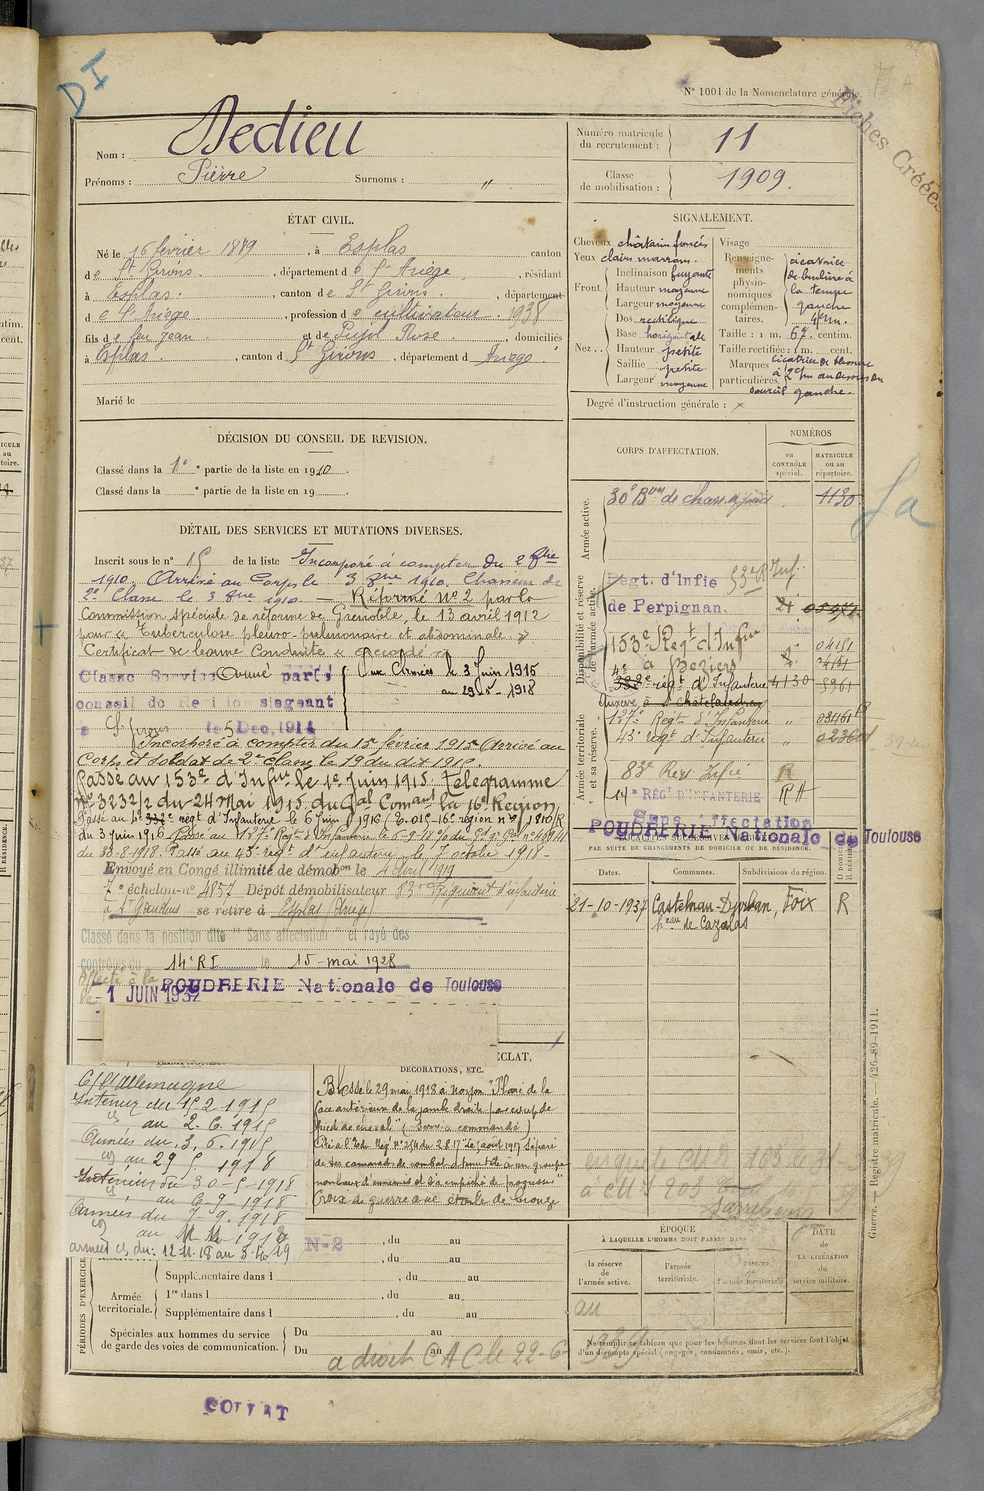 DI
N° 1001 de la Nomenclature générale.
Fiches Créées
Nom : Dedieu
Prénoms : Pierre Surnoms : "
Numéro matricule du recrutement : 11
Classe de mobilisation : 1909.
ÉTAT CIVIL.
Né le 16 février 1889, à Esplas canton
de St Girons, département de l'Ariège, résidant
à Esplas, canton de St Girons, département
de l'Ariège, profession de cultivateur. 1938
fils de feu Jean et de Pujol Rose, domiciliés
à Esplas, canton de St Girons, département d Ariège
Marié le
SIGNALEMENT.
Cheveux châtains foncés
Yeux clairs marrons.
Front. Inclinaison fuyante
Hauteur moyenne
Largeur moyenne
Nez. Dos rectiligne
Base horizontale
Hauteur petite
Saillie petite
Largeur moyenne
Visage
Renseignements physionomiques complémentaires. cicatrice de brulure à la tempe gauche
Taille : 1 m. 67 centim.
Taille rectifiée : 1 m. cent.
Marques particulières. cicatrice de blessure à 2cm au dessus du sourcil gauche.
Degré d'instruction générale : x
DÉCISION DU CONSEIL DE REVISION.
Classé dans la 1e partie de la liste en 1910.
Classé dans la partie de la liste en 19
DÉTAIL DES SERVICES ET MUTATIONS DIVERSES.
Inscrit sous le n° 15 de la liste Incorporé à compter du 2 8bre
1910. Arrivé au Corps le 3 8bre 1910. Chasseur de
2e Classe le 3 8bre 1910 — Réformé N° 2 par la
Commission spéciale de réforme de Grenoble, le 13 avril 1912
pour « Tuberculose pleuro-pulmonaire et abdominale. »
Certificat de bonne Conduite « accordé »
Classé Service Armé par le
conseil de Revision siégeant
à St Girons le 5 Dec. 1914
Aux Armées le 3 Juin 1915
au 29-5-1918
Incorporé à compter du 15 février 1915. Arrivé au
Corps et soldat de 2e classe le 19 du dit 1915.
Passé au 153e d'Infie le 1e Juin 1915. Télégramme
N° 3232/2 du 24 Mai 1915 du Gal Comant la 16e Région
Passé au 4e régt d'Infanterie le 6 Juin 1916
du 3 juin 1916. Passé au 127e Régt d'Infanterie le 6-9-18
du 30-8-1918. Passé au 43e régt d'infanterie le 7 octobre 1918 -
Envoyé en Congé illimité de démobon le 4 avril 1919
7e échelon n° 4857 Dépôt démobilisateur 83e Régiment d'infanterie
à St Gaudens se retire à Esplas (Ariège)
Classé dans la position dite "Sans affectation" et rayé des
contrôles du 14e RI le 15 - mai 1928
Affecté à la POUDRERIE Nationale de Toulouse
le - 1 JUIN 1932
CORPS D'AFFECTATION.
NUMÉROS
au CONTRÔLE spécial.
MATRICULE ou au répertoire.
Armée active.
30e Bon de chass. à pied 1130
Disponibilité et réserve de l'armée active.
Régt. d'Infie 53e R Inf.
de Perpignan.
153e Regt d'Infie 04151
à Béziers
4e régt d'Infanterie 4130 5961
Auxerre
Armée territoriale et sa réserve.
127e Régt d'Infanterie "
43e régt d'Infanterie "
83e Regt Infie R
14e RÉGt D'INFANTERIE RA
Sans affectation
POUDRERIE Nationale de Toulouse
LOCALITÉS SUCCESSIVES HABITÉES
PAR SUITE DE CHANGEMENTS DE DOMICILE OU DE RÉSIDENCE.
Dates. Communes. Subdivisions de région.
D DOMICILE R RÉSIDENCE
21-10-1937 Castelnau-Durban, Foix R
heau de Cazalas
ÉCLAT,
DECORATIONS, ETC.
Blessé le 29 mai 1918 à Noyon "Plaie de la
face antérieure de la jambe droite par coup de
pied de cheval" (Service commandé)
Cité à l'Ordre Régt N° 254 du 2.8.17 "Le 1 août 1917 séparé
de ses camarades de combat a tenu tête à un groupe
nombreux d'ennemis et l'a empêché de progresser"
Croix de guerre avec étoile de bronze
C/ l'Allemagne
Intérieur du 15 2-1915
au 2-6-1915
Armées du 3. 6. 1915
au 29 5. 1918
Intérieur du 30-5-1918
au 6-9-1918
Armées du 7-9.1918
au 11 11-1918
armées du : 12.11.18 au 3.4.19
N-2
, du au
, du au
PÉRIODES D'EXERCICE
Supplémentaire dans l , du au
Armée territoriale. 1re dans l , du au
Supplémentaire dans l , du au
Spéciales aux hommes du service de garde des voies de communication. Du au
Du au
a droit CAC le 22-6-
ÉPOQUE
À LAQUELLE L'HOMME DOIT PASSER DANS
la réserve de l'armée active.
l'armée territoriale.
la réserve de l'armée territoriale
DATE de LA LIBÉRATION du service militaire.
Ne remplir ce tableau que pour les hommes dont les services font l'objet d'un décompte spécial (engagés, condamnés, omis, etc.).
Guerre. — Registre matricule. — 426-89-1911.